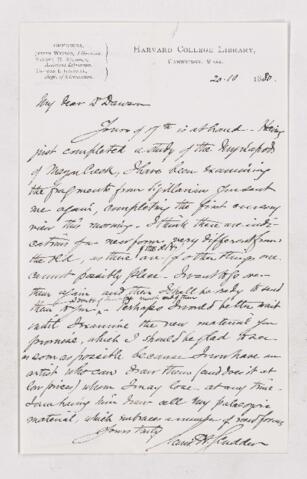 OFFICERS.
JUSTIN WINSOR, Librarian.
SAMUEL H. SCUDDER,
Assistant Librarian.
Dept. of
HARVARD COLLEGE LIBRARY,
CAMBRIDGE, MASS.
20.10 1880.
My dear Dr Dawson
Yours of 9th is at hand. Having
just completed a study of the Myriapods
of Mazon Creek, I have been examining
the fragments from Sigillarian you sent
me again, completing the first cursory
view this morning. I think there are indi-
cations of a new form, very different from
the old, as there are of other things one
cannot possibly place. I want to go over
them again and then I shall be ready to send
them to you. Perhaps I would better wait
until I examine the new material you
promise, which I should be glad to do
as soon as possible because I now have an
artist who can draw them (and does it at
low prices) whom I may lose at any time.
I am having him draw all my palaeozoic
material, which embraces a number of new forms
Yours truly
Sam. H. Scudder